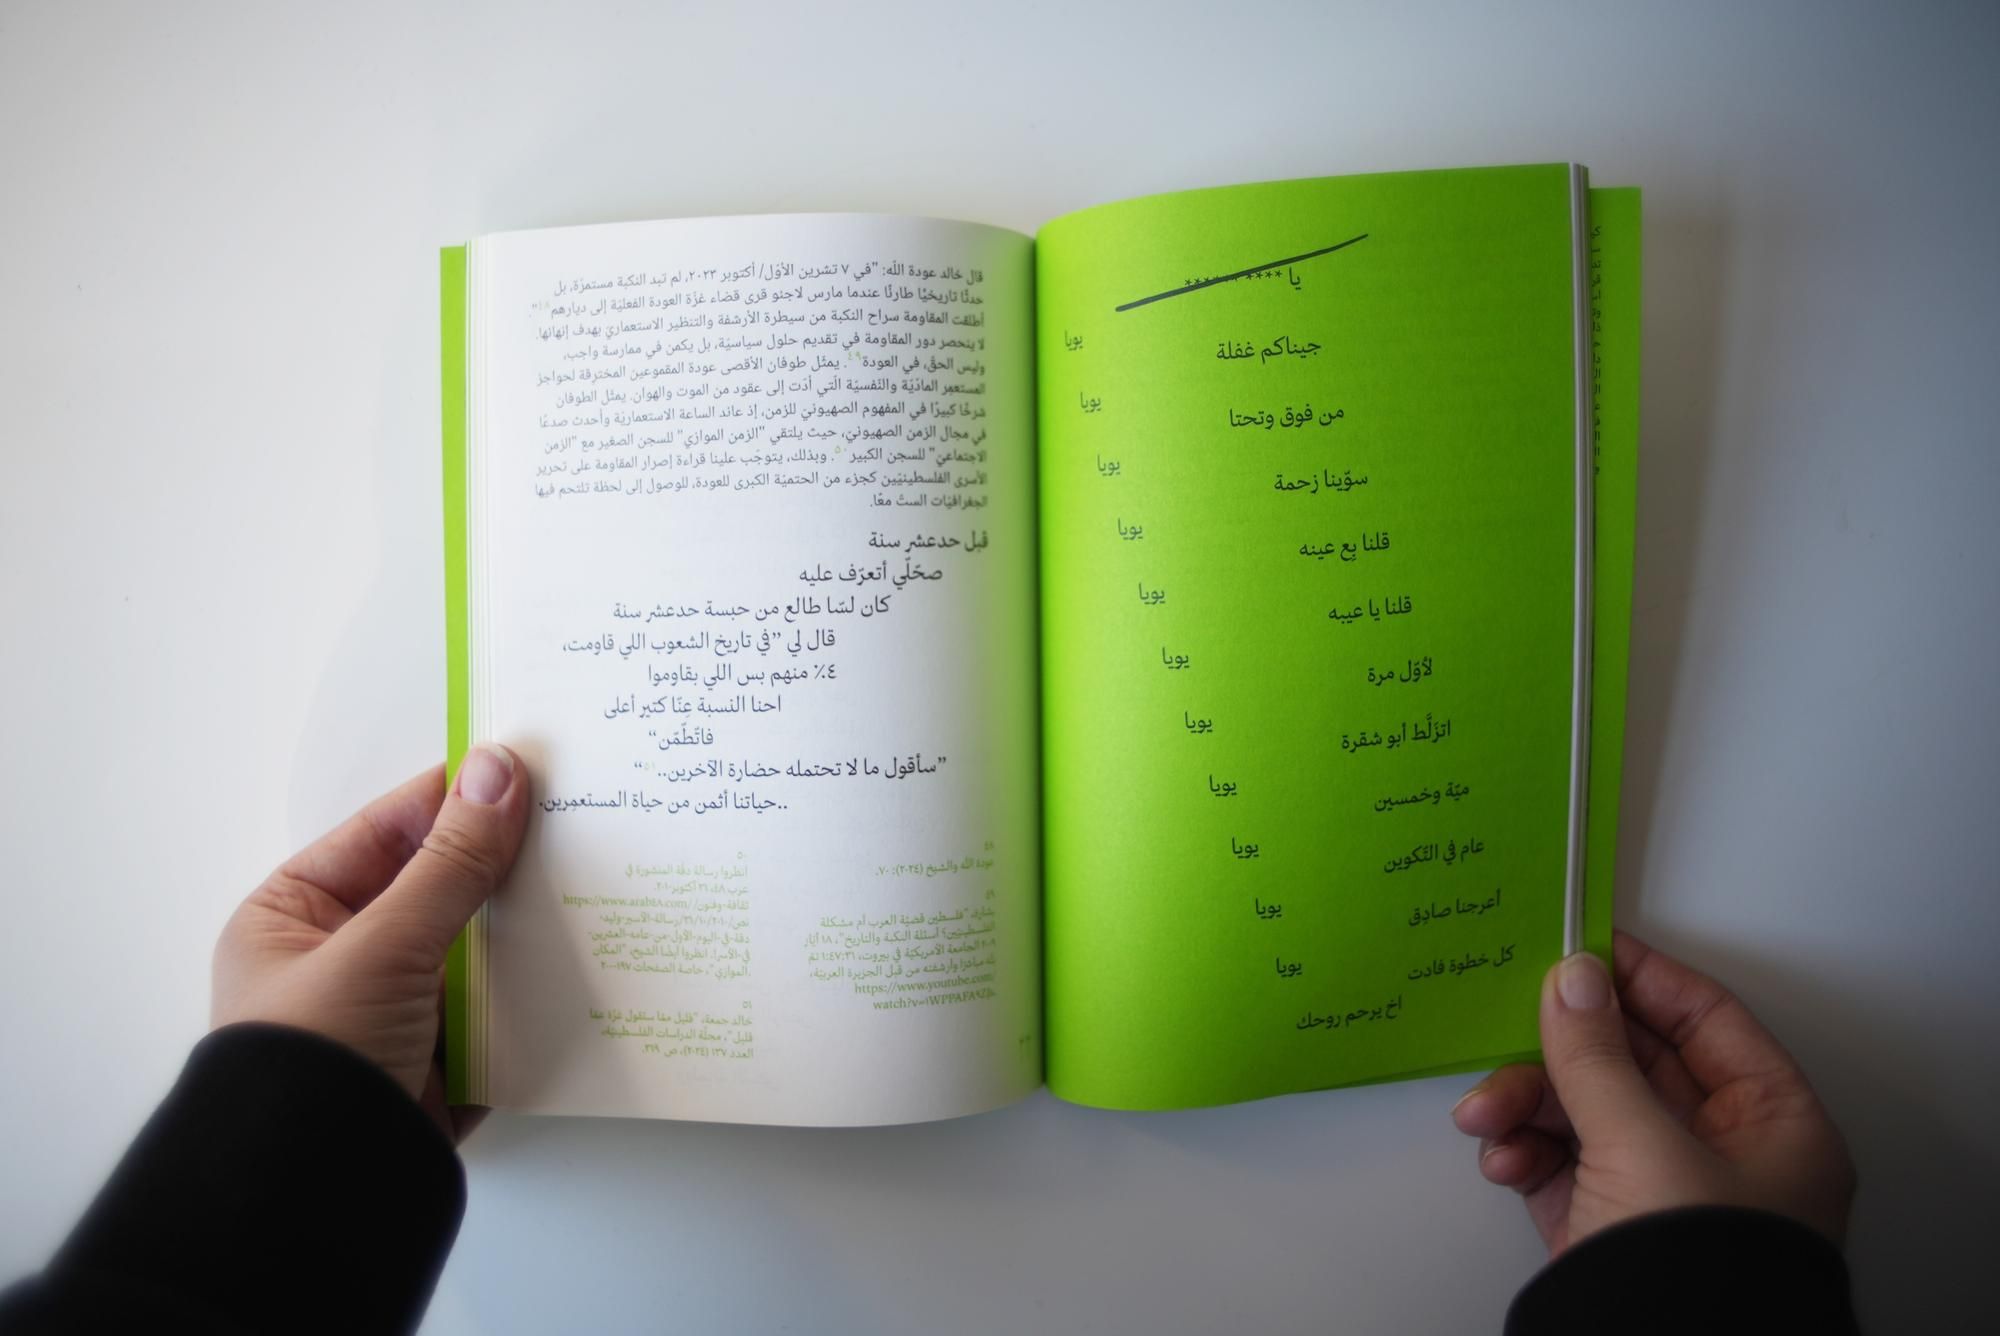 يا **** ******
جيناكم غفلة
يويا
من فوق وتحتا
يويا
سوّينا زحمة
يويا
قلنا بِع عينه
يويا
قلنا يا عيبه
يويا
لأوّل مرة
يويا
اتزَلَّط أبو شقرة
يويا
ميّة وخمسين
يويا
عام في التّكوين
يويا
أعرجنا صادِق
يويا
كل خطوة فادت
يويا
اخ يرحم روحك
قال خالد عودة الله: "في ٧ تشرين الأوّل/ أكتوبر ٢٠٢٣، لم تبد النكبة مستمرّة، بل
حدثًا تاريخيًا طارئًا عندما مارس لاجئو قرى قضاء غزّة العودة الفعليّة إلى ديارهم٤٨".
أطلقت المقاومة سراح النكبة من سيطرة الأرشفة والتنظير الاستعماريّ بهدف إنهائها.
لا ينحصر دور المقاومة في تقديم حلول سياسيّة، بل يكمن في ممارسة واجب،
وليس الحقّ، في العودة٤٩. يمثّل طوفان الأقصى عودة المقموعين المخترِقة لحواجز
المستعمِر المادّيّة والنّفسيّة الّتي أدّت إلى عقود من الموت والهوان. يمثّل الطوفان
شرخًا كبيرًا في المفهوم الصهيونيّ للزمن، إذ عاند الساعة الاستعماريّة وأحدث صدعًا
في مجال الزمن الصهيونيّ، حيث يلتقي "الزمن الموازي" للسجن الصغير مع "الزمن
الاجتماعيّ" للسجن الكبير٥٠. وبذلك، يتوجّب علينا قراءة إصرار المقاومة على تحرير
الأسرى الفلسطينيّين كجزء من الحتميّة الكبرى للعودة، للوصول إلى لحظة تلتحم فيها
الجغرافيّات الستّ معًا.
قبل حدعشر سنة
صحّلّي أتعرّف عليه
كان لسّا طالع من حبسة حدعشر سنة
قال لي ”في تاريخ الشعوب اللي قاومت،
٤٪ منهم بس اللي بقاوموا
احنا النسبة عِنّا كتير أعلى
فاتّطّمّن“
”سأقول ما لا تحتمله حضارة الآخرين..٥١“
..حياتنا أثمن من حياة المستعمِرين.
٤٨
عودة الله والشيخ (٢٠٢٤): ٧٠.
٤٩
بشارة، "فلسطين قضيّة العرب أم مشكلة
الفلسطينيّين؟ أسئلة النكبة والتاريخ"، ١٨ أيّار
٢٠٠٩ الجامعة الأمريكيّة في بيروت، ١:٤٧:٣١ تمّ
بثّه مباشرًا وأرشفته من قبل الجزيرة العربيّة،
https://www.youtube.com/
٥٠
انظروا رسالة دقّة المنشورة في
عرب ٤٨، ٢٦ أكتوبر ٢٠١٠.
https://www.arab٤٨.com/ثقافة-وفنون/
نص/٢٠١٠/١٠/٢٦/رسالة-الأسير-وليد-
دقة-في-اليوم-الأول-من-عامه-العشرين-
في-الأسر/. انظروا أيضًا الشيخ، "المكان
الموازي"، خاصة الصفحات ١٩٧-٢٠٠.
٥١
خالد جمعة، "قليل ممّا ستقول غزّة عمّا
قليل"، مجلّة الدراسات الفلسطينيّة،
العدد ١٣٧ (٢٠٢٤)، ص ٣٦٩.